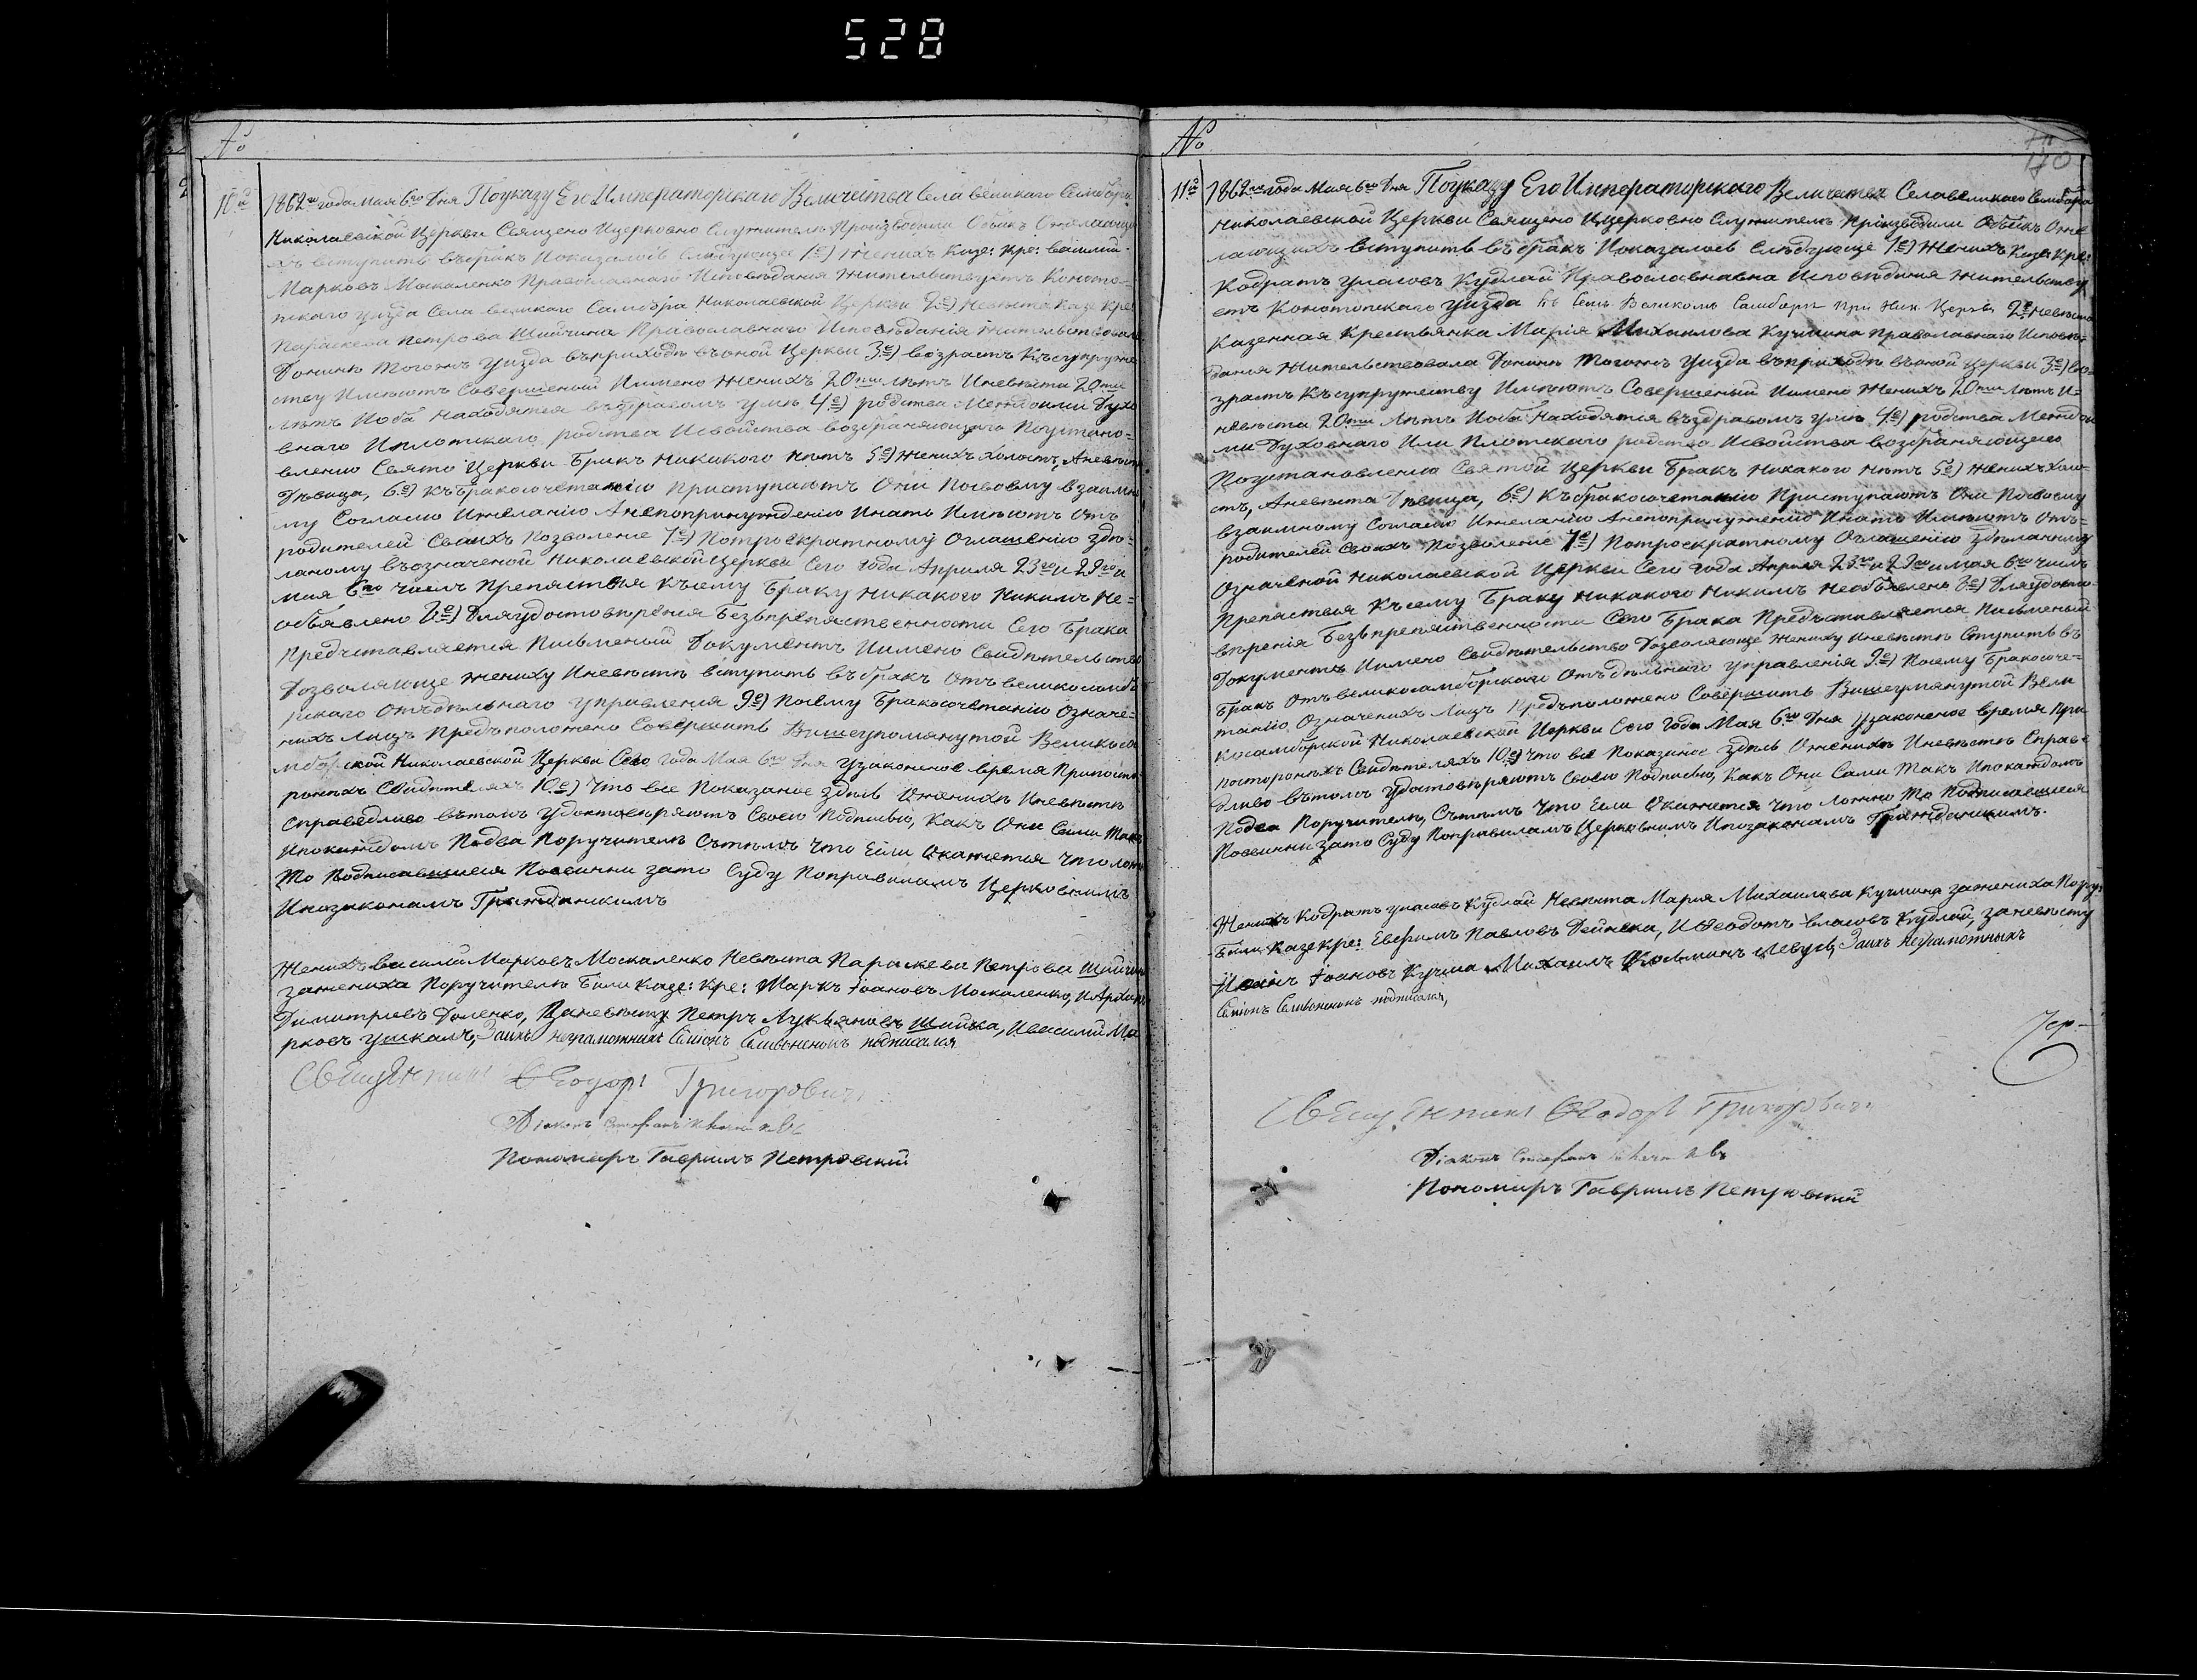 528
№
10й
1862го года мая 6го дня По указу Его Императорскаго Величества села великаго Самбора
Николаевской Церкви Священо Ицерковно служители Производили Обыкъ Ожелающи
хъ вступить вбракъ Показалось следующее 1е) Женихъ Казе: Кре: василий
Марковъ Москаленко Православнаго Исповѣдания Жительствуетъ Коното-
пскаго уизда Села великаго Самбора Николаевской Церкви 2е) Невѣста Казе Кре:
Параскева Петрова Шийчина Православнаго Исповѣданія жительствовала
Донинѣ Тогожъ Уизда въприходѣ въоной Церкви 3е) возрастъ Къ супруже
ству Имѣютъ Совершеный Имено Женихъ 20ти лѣтъ Иневѣста 20ти
лѣтъ Иоба находятся въздравомъ умѣ 4е) родства Межъдоими Духо
внаго Иплотскаго родства Исвойства возбраняющаго Поустано=
влению Свято Церкви Бракъ Никакого нѣтъ 5е) Женихъ холостъ, Аневѣста
Дѣвица, 6е) Къбракосочетанію Приступаютъ Они Посвоему взаимно
му Согласию Ижеланію Анепопринуждению Инато Имѣютъ Отъ
родителей Своихъ Позволение 7е) Потроекратному Оглашению здѣ-
ланому въозначеной Николаевской Церкви Сего года Апреля 23го и 29го и
мая 6го числъ Препяствия Късему Браку Никакого Никимъ Не=
объявлено 8е) Дляудостовѣрения Безъпрепяственности Сего Брака
Предъставляется Письменый Документъ Иимено Свидѣтельство
Дозволяюще жениху Иневѣстѣ вступить въбракъ Отъ великосамбо
рскаго Отъдѣльнаго Управления 9е) Посему Бракосочетанию Означе=
нихъ Лицъ Предъположено Совершить Вишеупомянутой Великоса
мборской Николаевской Церкви Сего года Мая 6го дня узаконеное время Припосто
роннихъ Свидѣтеляхъ 10е) Что все Показаное здѣсь Оженихѣ Иневѣстѣ
Справедливо вътомъ Удостовѣряютъ Своею Подписью, Какъ Они Сами Такъ
Ипокаждомъ Подва Поручителя Сътѣмъ Что Если Окажется Что ложно
То Подписавшиеся Повинни зато Суду Поправиламъ Церковнимъ
Ипозаконамъ Гражданскимъ
Женихъ василий Марковъ Москаленко Невѣста Параскева Петрова Шийчина
зажениха Поручители Били Казе: Кре: Маркъ Iоановъ Москаленко,
Димитриевъ Доленко, Заневѣсту Петръ Лукьяновъ Шийка, Ивасилий Ма
рковъ ушкалъ, Заихъ неграмотнихъ Симонъ подписался
Священникъ Феодоръ Григоровичъ
Діаконъ Стефанъ
Пономаръ Гавриилъ Петровский
№
170
11й
1862го года Мая 6го дня По указу Его Императорскаго Величества Села великаго Самбора
Николаевской Церкви Священо Ицерковно Служители Производили Обыкъ Оже
лающихъ вступить въбракъ Показалось Слѣдующе 1е) Женихъ Казе: Кре:
Кодратъ Уласовъ Кублай Православнава Исповѣдания Жительству
етъ Конотопскаго Уизда въ Селѣ Великомъ Самборѣ при Ник. Церкви 2е) Невѣста
Казенная Крестьянка Марія Михаилова Кучмина Православнаго Исповѣ=
дания Жительствовала Донинѣ Тогожъ Уизда въприходѣ въоной Церкви 3е) Во
зрастъ Късупружеству Имѣютъ Совершеный Иимено Женихъ 20ти лѣтъ И-
невѣста 20ти лѣтъ Иоба Находятся въздравомъ умѣ 4е) родства Межъдои
ми Духовнаго Или Плотскаго родства Исвойства возбраняющаго
Поустановлению Святой Церкви Бракъ Никакого Нѣтъ 5е) Женихъ холо
стъ, Аневѣста Дѣвица, 6е) Къбракосочетанию Приступаютъ Они Посвоему
взаимному Согласию Ижеланію Анепопринужению Инато Имѣютъ Отъ=
родителей Своихъ Позволение 7е) Потроекратному Оглашению здѣланому
Означеной Николаевской Церкви Сего года Апреля 23го и 29го и мая 6го числъ
Препаствия Късему Браку Никакого Никимъ Необъявлено 8е) Дляудосто
вѣренія Безъпрепяственности Сего Брака Предъставляется Письменый
Документъ Иимено Свидѣтельство Дозволяюще Жениху Иневѣстѣ Ступить въ
Бракъ Отъ великосамборскаго Отъдѣльнаго Управления 9е) Посему Бракосоче=
танию Означенихъ Лицъ Предъположено Совершить Вишеупмянутой Вели
косамборской Николаевской Церкви Сего года Мая 6го дня Узаконеное время При
постороннихъ Свидѣтеляхъ 10е) Что всё Показаное здѣсь Оженихѣ Иневѣстѣ Справе
дливо вътомъ Удостовѣряютъ Своею Подписью, Какъ Они Сами Такъ Ипокаждомъ
Подва Поручителя, Сътѣмъ Что Если Окажется Что ложно То Подписавшиеся
Повинни зато Суду Поправиламъ Церковнимъ Ипозаконамъ Гражданскимъ.
Женихъ Кодратъ Уласовъ Кублай Невѣста Мария Михаилова Кучмина зажениха Пору:
Били Казе Кре: Евфимъ Павловъ Дейнека, Иѳеодотъ власовъ Кублай, заневѣсту
Iоанъ Iоановъ Кучма Михаилъ Козьминъ Заихъ неграмотныхъ
Симонъ подписался,
Священникъ Феодоръ Григоровичъ
Діаконъ Стефанъ
Пономаръ Гавриилъ Петровский